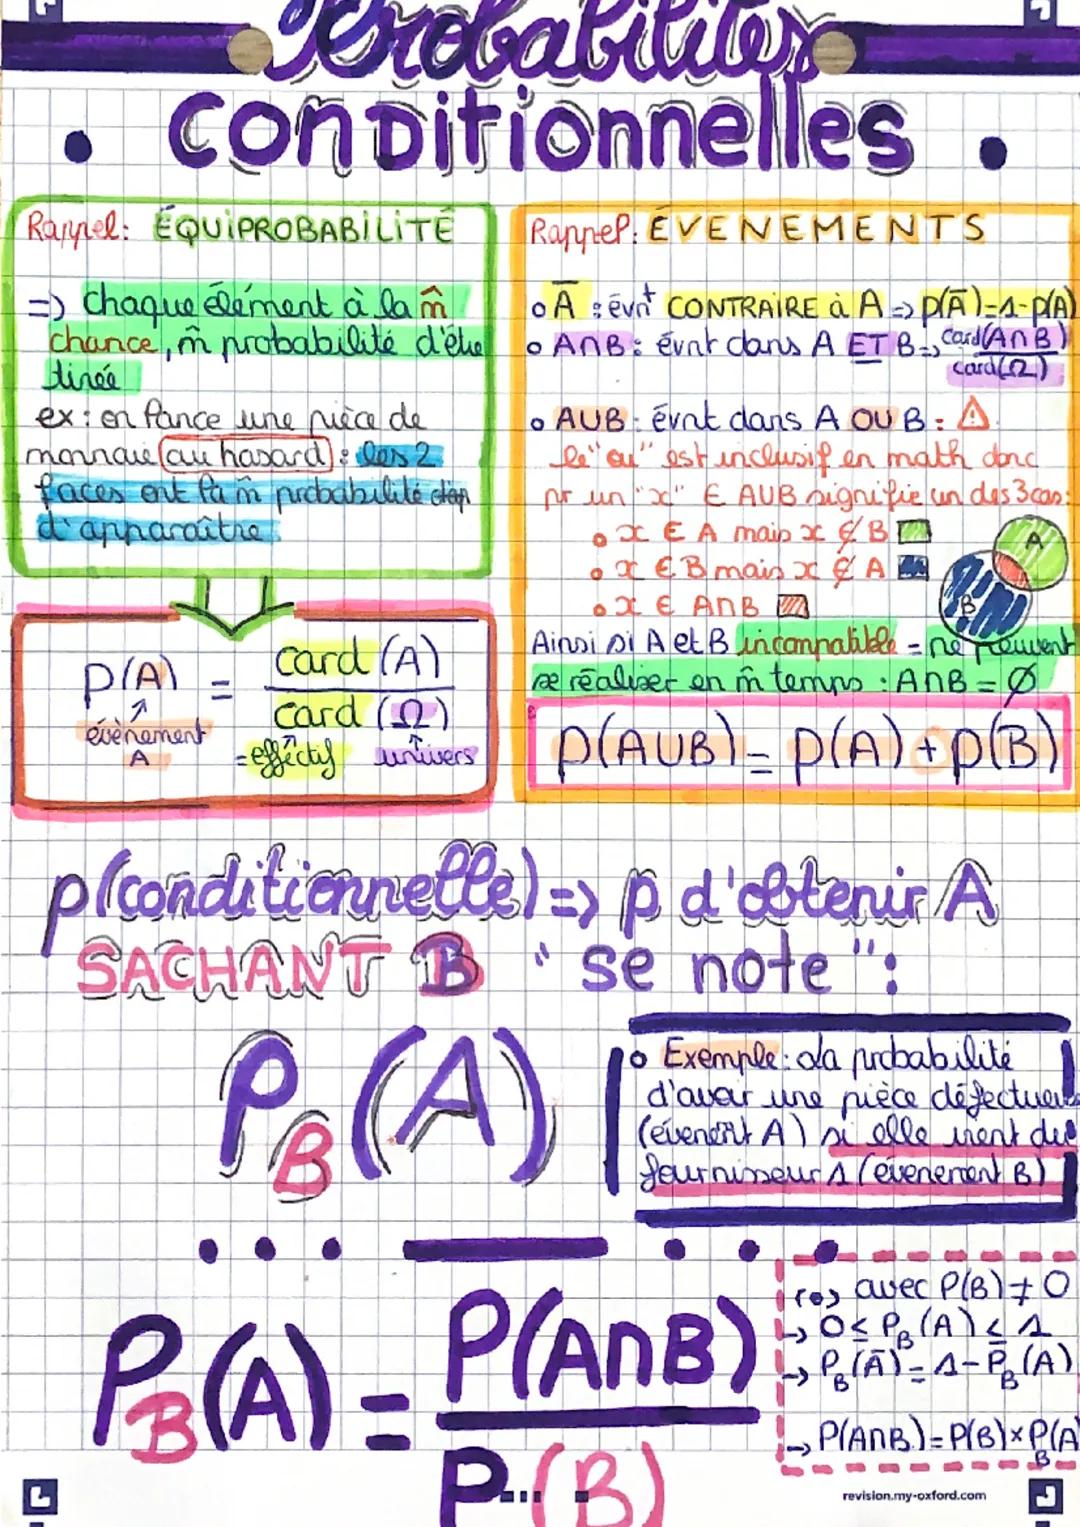 Probabilités
conditionnelles
Rappel: ÉQUIPROBABILITÉ
=> chaque élément à la m̂
chance, m̂ probabilité d'être
tirée
ex: on lance une pièce de
monnaie au hasard : les 2
faces ont la m̂ probabilité
d'apparaître
P(A) = card (A) / card (Ω)
évènement A
= effectif
univers
Rappel: ÉVENEMENTS
o Ā : évnt CONTRAIRE à A => p(Ā)=1-p(A)
o A∩B: évnt dans A ET B => card(A∩B) / card(Ω)
o AUB: évnt dans A OU B: ⚠
le "ou" est inclusif en math donc
pr un "x" ∈ AUB signifie un des 3 cas:
o x ∈ A mais x ∉ B
o x ∈ B mais x ∉ A
o x ∈ A∩B
A
B
Ainsi si A et B incompatible = ne peuvent
se réaliser en m̂ temps : A∩B = Ø
p(AUB) = p(A) + p(B)
p(conditionnelle) => p d'obtenir A
SACHANT B "se note":
P_B(A)
o Exemple: La probabilité
d'avoir une pièce défectueus
(évenent A) si elle vient du
fournisseur 1 (évenement B)
P_B(A) = P(A∩B) / P(B)
avec P(B) ≠ 0
-> 0 ≤ P_B(A) ≤ 1
-> P_B(Ā) = 1 - P_B(A)
-> P(A∩B) = P(B) × P_B(A
revision.my-oxford.com